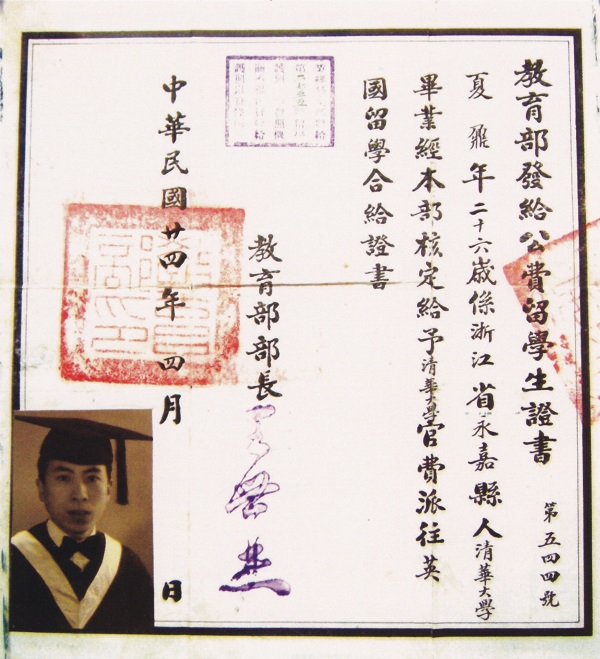 教育部發給公費留學生證書
第五四四號
夏鼐年二十六歲係浙江省永嘉縣人清華大學
畢業經本部核定給予清華大學官費派往英
國留學合給證書
教育部部長王世杰
中華民國廿四年四月 日